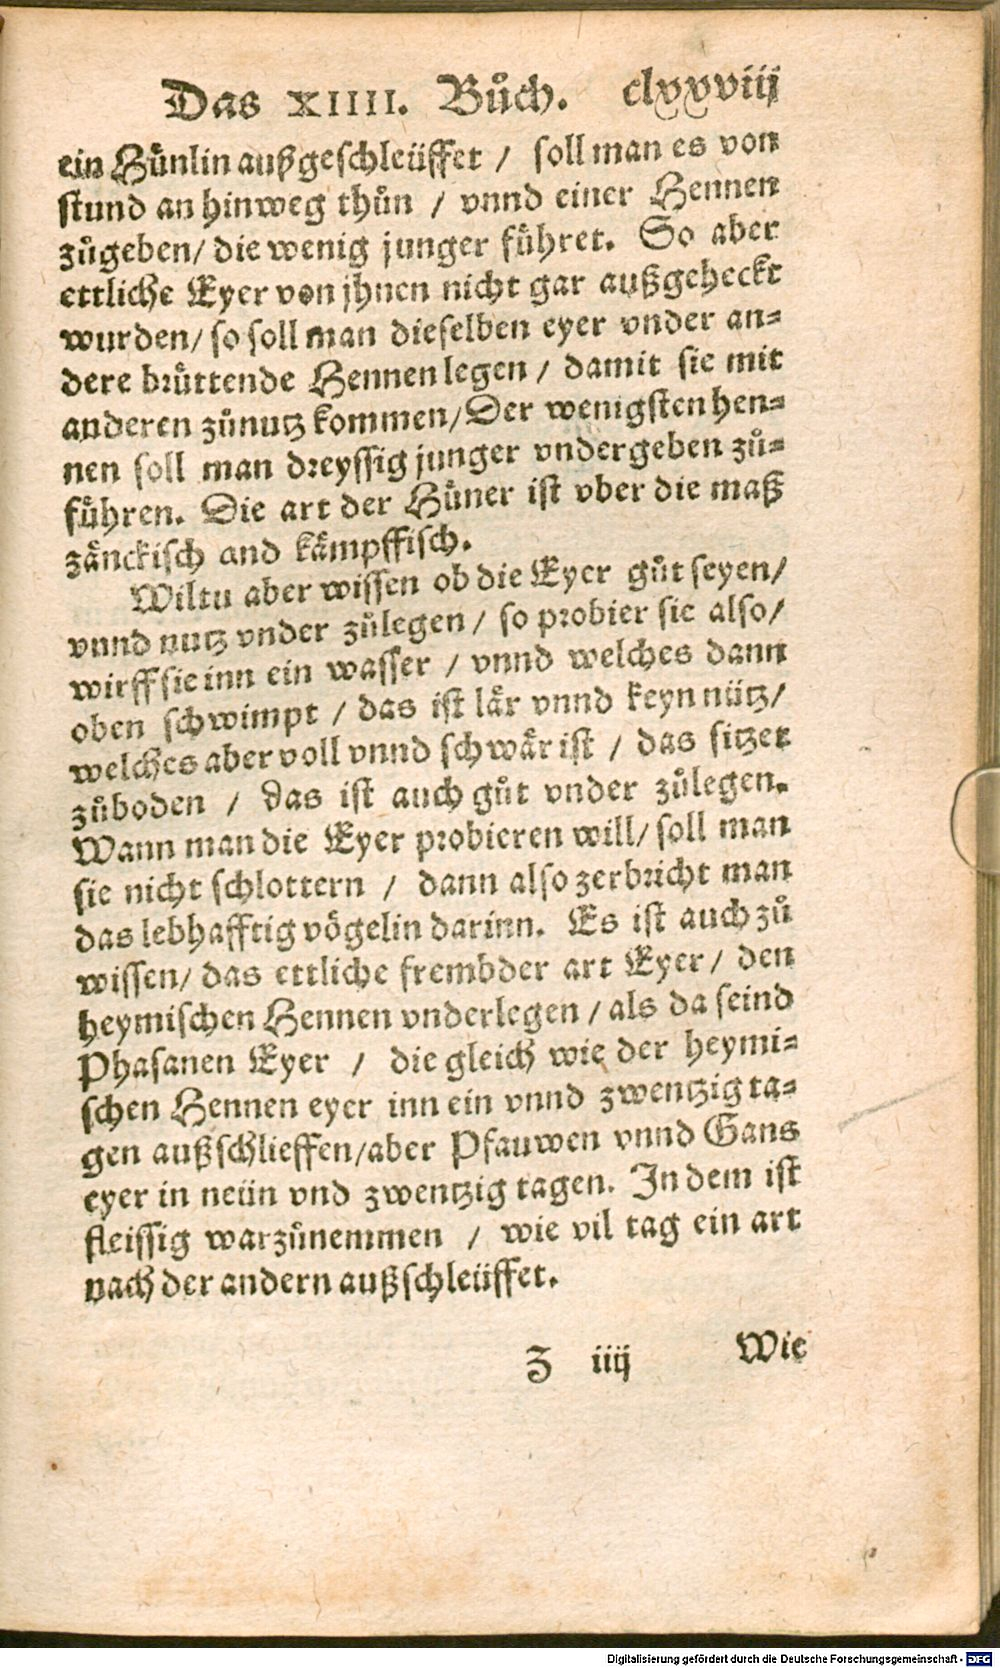 Das XIIII. Bůch. clxxviij
ein Hůnlin außgeschleüffet / soll man es von
stund an hinweg thůn / vnnd einer Hennen
zůgeben/ die wenig junger fůhret. So aber
ettliche Eyer von jhnen nicht gar außgeheckt
wurden/ so soll man dieselben eyer vnder an⸗
dere brůttende Hennen legen / damit sie mit
anderen zůnutz kommen/ Der wenigsten hen⸗
nen soll man dreyssig junger vndergeben zů⸗
fůhren. Die art der Hůner ist vber die maß
zånckisch and kåmpffisch.
Wiltu aber wissen ob die Eyer gůt seyen/
vnnd nutz vnder zůlegen / so probier sie also/
wirff sie inn ein wasser / vnnd welches dann
oben schwimpt / das ist lår vnnd keyn nütz/
welches aber voll vnnd schwår ist / das sitzet
zůboden / das ist auch gůt vnder zůlegen.
Wann man die Eyer probieren will/ soll man
sie nicht schlottern / dann also zerbricht man
das lebhafftig vögelin darinn. Es ist auch zů
wissen/ das ettliche frembder art Eyer/ den
heymischen Hennen vnderlegen / als da seind
Phasanen Eyer / die gleich wie der heymi⸗
schen Hennen eyer inn ein vnnd zwentzig ta⸗
gen außschlieffen/aber Pfauwen vnnd Gans
eyer in neün vnd zwentzig tagen. In dem ist
fleissig warzůnemmen / wie vil tag ein art
nach der andern außschleüffet.
Z iiij Wie
Digitalisierung gefördert durch die Deutsche Forschungsgemeinschaft - DFG